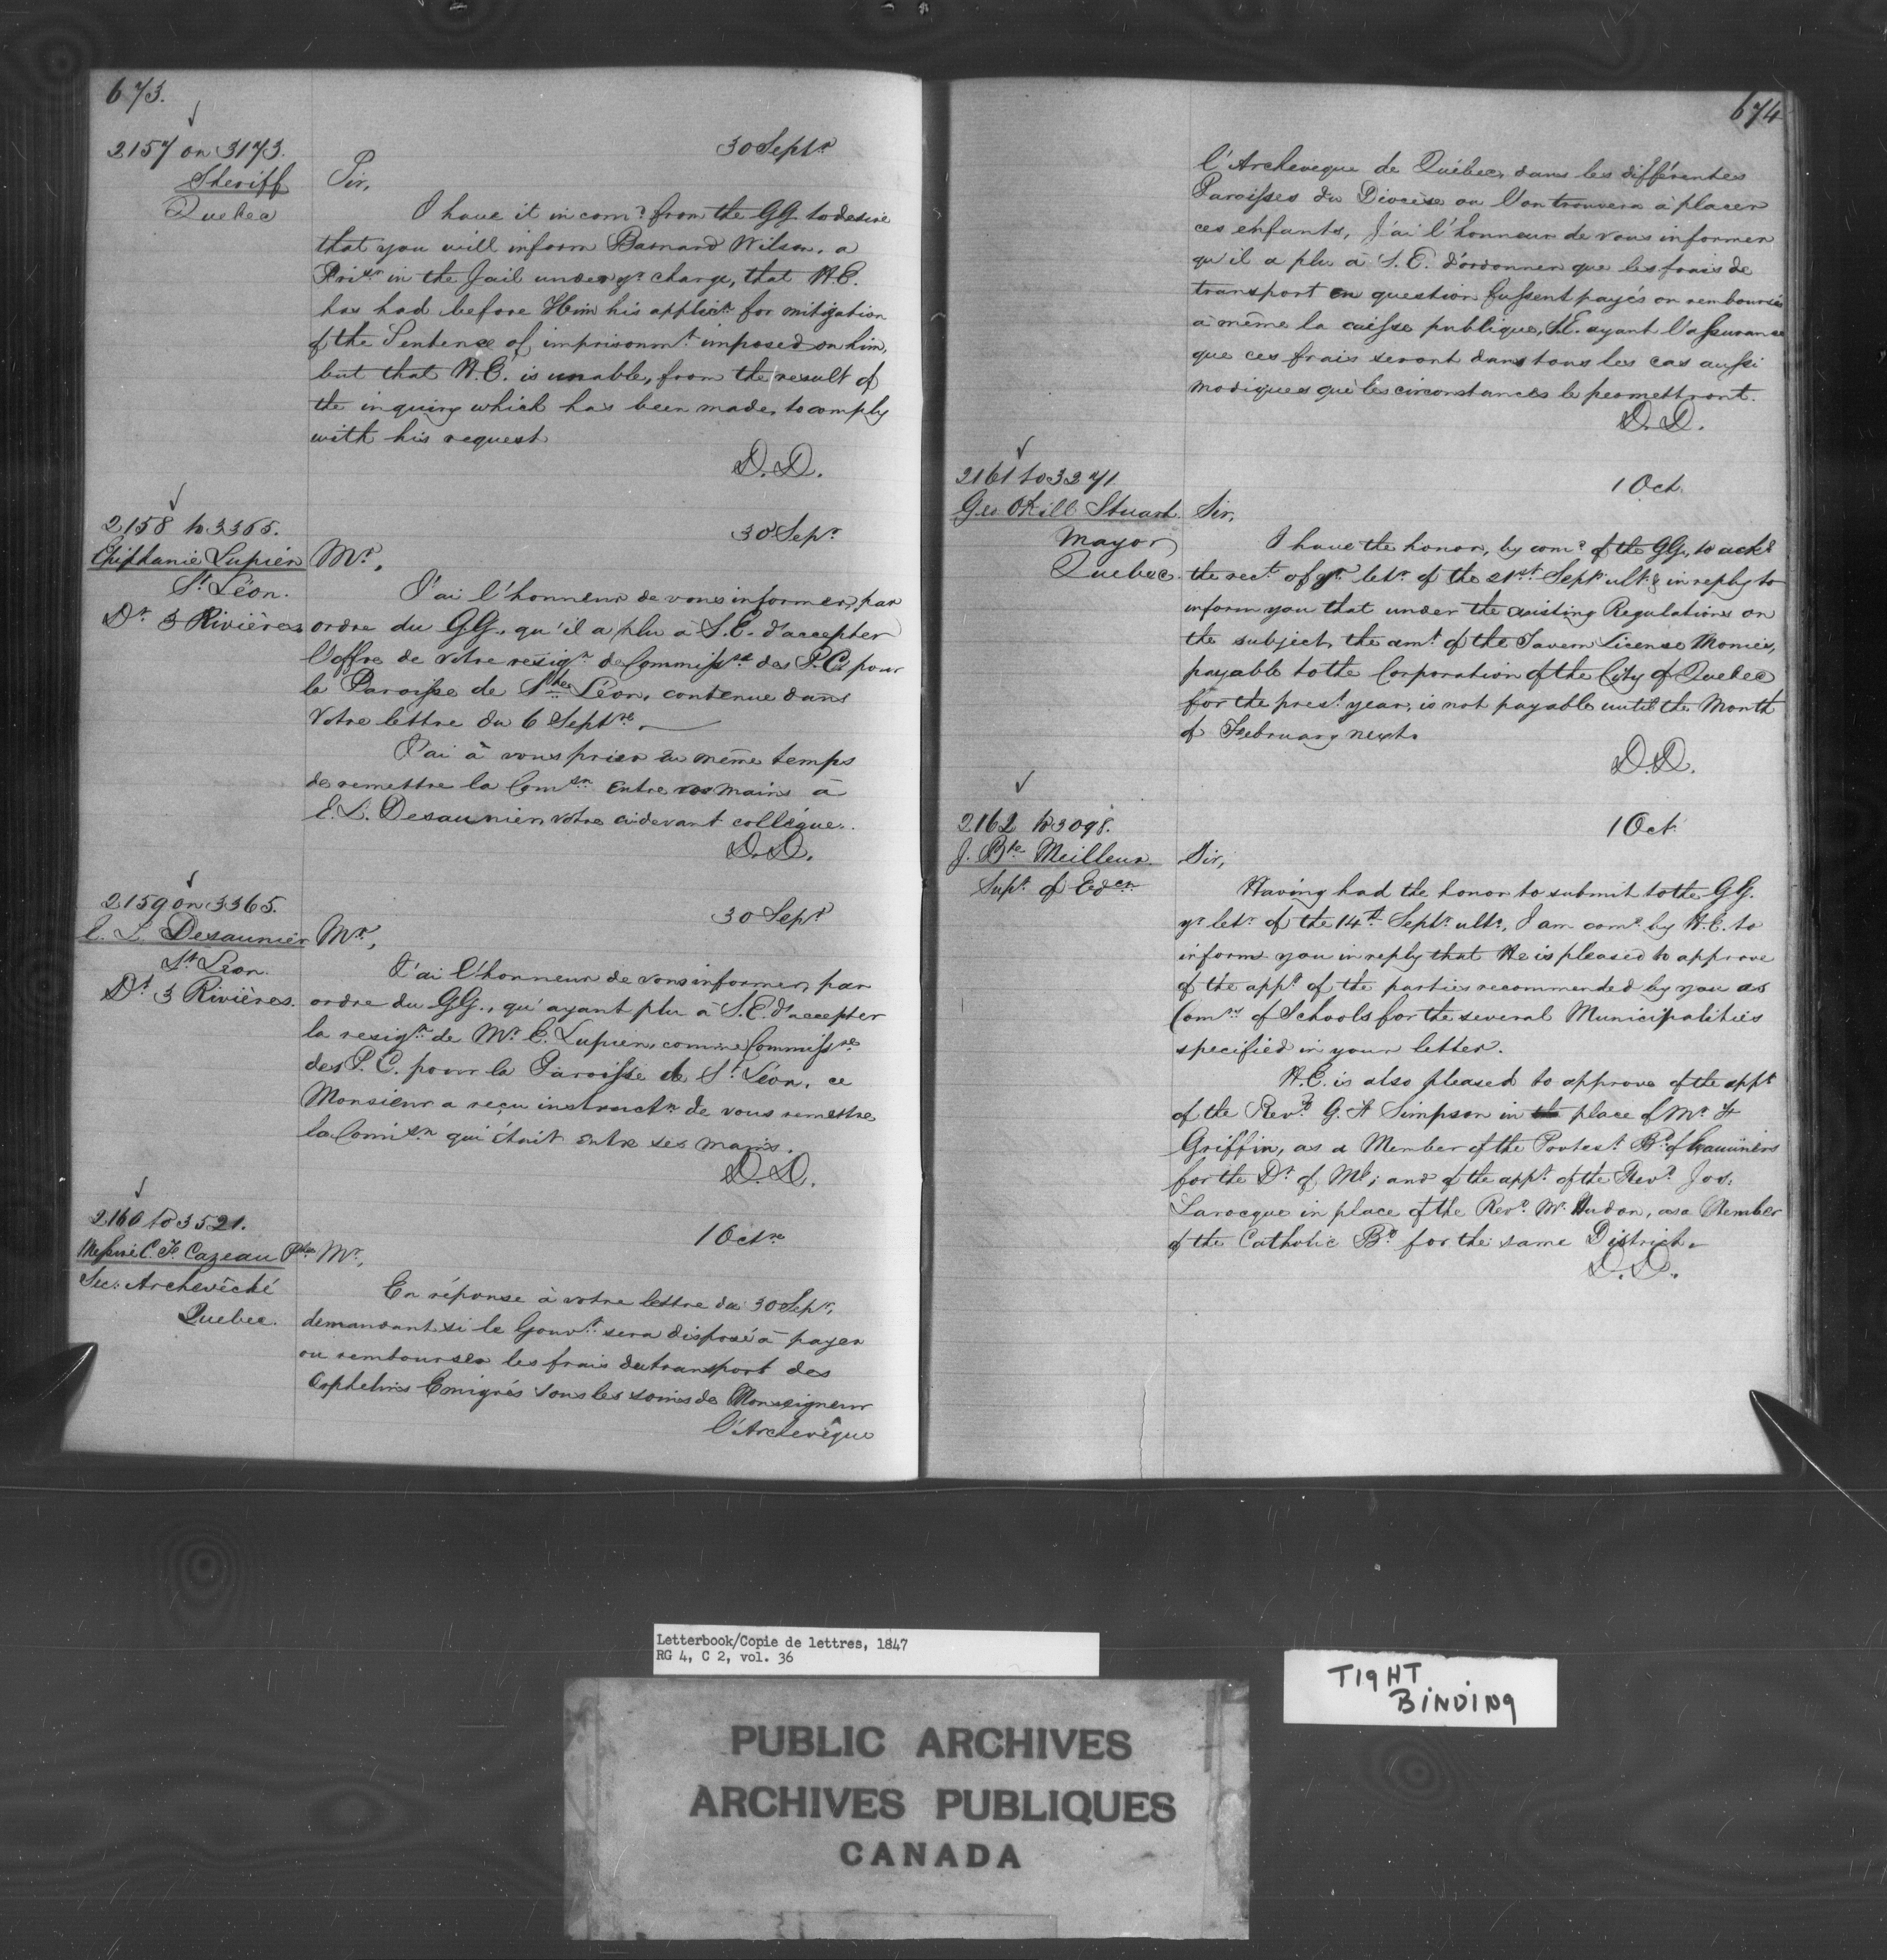 673.
2157 on 3173.
Sheriff
Quebec
30 Septr
Sir,
I have it in comd from the GG. to desire
that you will inform Barnard Wilson, a
Prisr in the Jail under yr charge, that H.E.
has had before Him his applicn for mitigation
of the Sentence of imprisonmt imposed on him,
but that H.E. is unable, from the result of
the inquiry which has been made, to comply
with his request
D.D.
2158 to 3365.
Epiphanie Lupien
St Léon.
Dt 3 Rivières
30 Sepr
Mr,
J'ai l'honneur de vous informer, par
ordre du GG., qu'il a plu à S.E. d'accepter
l'offre de votre résign de Commissre des P.C. pour
la Paroisse de St Léon, contenue dans
Votre lettre du 6 Septre.
J'ai à vous prier en même temps
de remettre la Comsn entre vos mains à
E. L. Desaunier votre cidevant collègue.
D.D.
2159 on 3365.
E. L. Desaunier
St Leon.
Dt 3 Rivières.
30 Sept
Mr,
J'ai l'honneur de vous informer, par
ordre du GG., qu'ayant plu à S.E. d'accepter
la resign de Mr E. Lupien, comme Commissre
des P.C. pour la Paroisse de St Léon, ce
Monsieur a reçu instructn de vous remettre
la Comisn qui était entre ses mains.
D.D.
2160 to 3521.
Messire C. F. Cazeau Ptre
Sec: Archevêché
Quebec.
1 Octre
Mr,
En réponse à votre lettre du 30 Sepr,
demandant si le Gouvt sera disposé à payer
ou rembourser les frais du transport des
Orphelins Emigrés sous les soins de Monseigneur
l'Archevêque
674
l'Archeveque de Québec, dans les différentes
Paroisses du Diocèse ou l'on trouvera à placer
ces enfants, J'ai l'honneur de vous informer
qu'il a plu à S.E. d'ordonner que les frais de
transport en question fussent payés ou remboursés
à même la caisse publique, S.E. ayant l'assurance
que ces frais seront dans tous les cas aussi
modiques que les circonstances le permettront.
D.D.
2161 to 3271
Geo Okill Stuart
Mayor
Quebec
1 Oct.
Sir,
I have the honor, by comd of the GG, to ackd
the rect of yr letr of the 21st Septr ulto & in reply to
inform you that under the existing Regulations on
the subject, the amt of the Tavern License Monies,
payable to the Corporation of the City of Quebec
for the prest year, is not payable until the Month
of February next.
D.D.
2162 to 3098.
J. Bte Meilleur
Supt of Edcn
1 Oct.
Sir,
Having had the honor to submit to the GG.
yr letr of the 14th Septr ulto, I am comd by H.E. to
inform you in reply that He is pleased to approve
of the appt of the parties recommended by you as
Comrs of Schools for the several Municipalities
specified in your letter.
H.E. is also pleased to approve of the appt
of the Revd G. F Simpson in the place of Mr F
Griffin, as a Member of the Protest Bd of Examiners
for the Dt of Ml; and of the appt of the Revd Jos:
Larocque in place of the Revd Mr Hudon, as a Member
of the Catholic Bd for the same District.
D.D.
Letterbook/Copie de lettres, 1847
RG 4, C 2, vol. 36
TIGHT
BINDING
PUBLIC ARCHIVES
ARCHIVES PUBLIQUES
CANADA